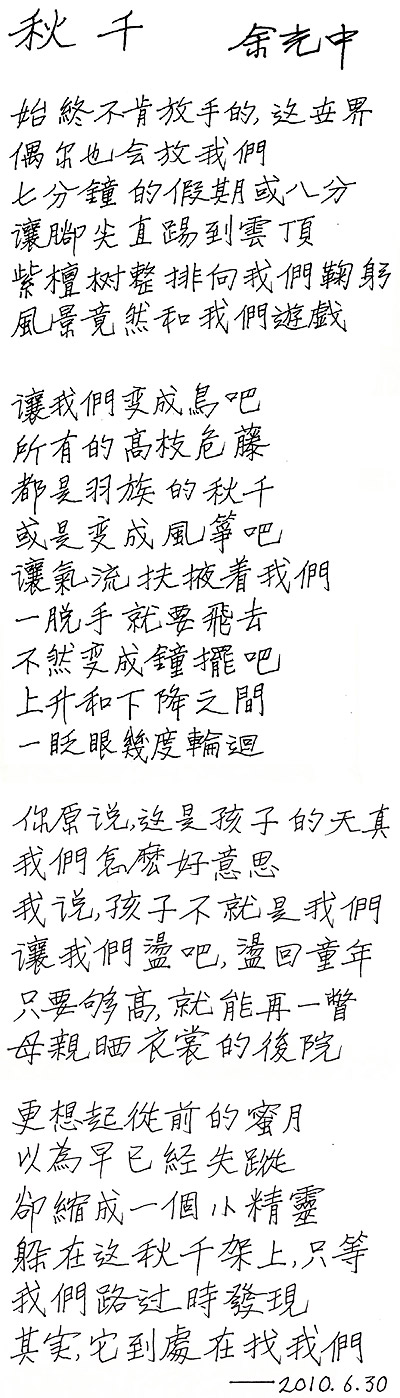 秋千 余光中
始終不肯放手的,这世界
偶尔也会放我們
七分鐘的假期或八分
讓腳尖直踢到雲頂
紫檀树整排向我們鞠躬
風景竟然和我們遊戲
讓我們变成鳥吧
所有的高枝危藤
都是羽族的秋千
或是变成風箏吧
讓氣流扶掖着我們
一脱手就要飛去
不然变成鐘擺吧
上升和下降之間
一眨眼幾度輪迴
你原说,这是孩子的天真
我們怎麼好意思
我说,孩子不就是我們
讓我們盪吧,盪回童年
只要够高,就能再一瞥
母親晒衣裳的後院
更想起從前的蜜月
以為早已經失蹤
卻縮成一個小精靈
躲在这秋千架上,只等
我們路过時發現
其实,它到處在找我們
——2010.6.30